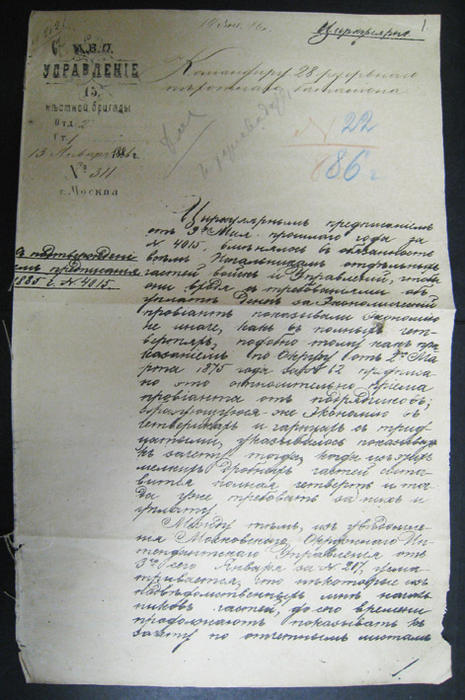 Циркулярно.
1.
М. В. О.
УПРАВЛЕНІЕ
15.
мѣстной бригады
Отд. 2
Ст. 1
13 Января 1886 г.
№ 311
г. Москва
Командиру 28 резервнаго
пѣхотнаго баталіона
№ 22
86 г
Въ подтвержденіе
предписанія
1885 г. № 4015.
Циркулярнымъ предписаніемъ
отъ 3го Мая прошлаго года за
№ 4015, вмѣнялось въ обязанность
всѣмъ Начальникамъ отдѣльныхъ
частей войскъ и Управленій, чтобы
они входя съ требованіями объ
уплатѣ денегъ за экономическій
провіантъ показывали экономію
не иначе, какъ въ полныхъ чет-
вертяхъ, подобно тому какъ при-
казаніемъ по Округу отъ 2го Ма-
рта 1875 года за № 62
но это относительно пріема
провіанта отъ подрядчиковъ;
же экономію въ
четверикахъ и гарнцахъ съ
указывалось показывать
къ зачету тогда, когда изъ этихъ
мелкихъ дробныхъ частей соста-
вится полная четверть и тог-
да уже требовать за нихъ и
уплату.
Между тѣмъ, изъ увѣдомле-
нія Московскаго Окружнаго Ин-
тендантскаго Управленія отъ
3го сего Января за № 217, усма-
тривается, что нѣкоторые изъ
подвѣдомственныхъ мнѣ началь-
никовъ частей, до сего времени
продолжаютъ показывать къ
зачету по отчетнымъ листамъ
1.